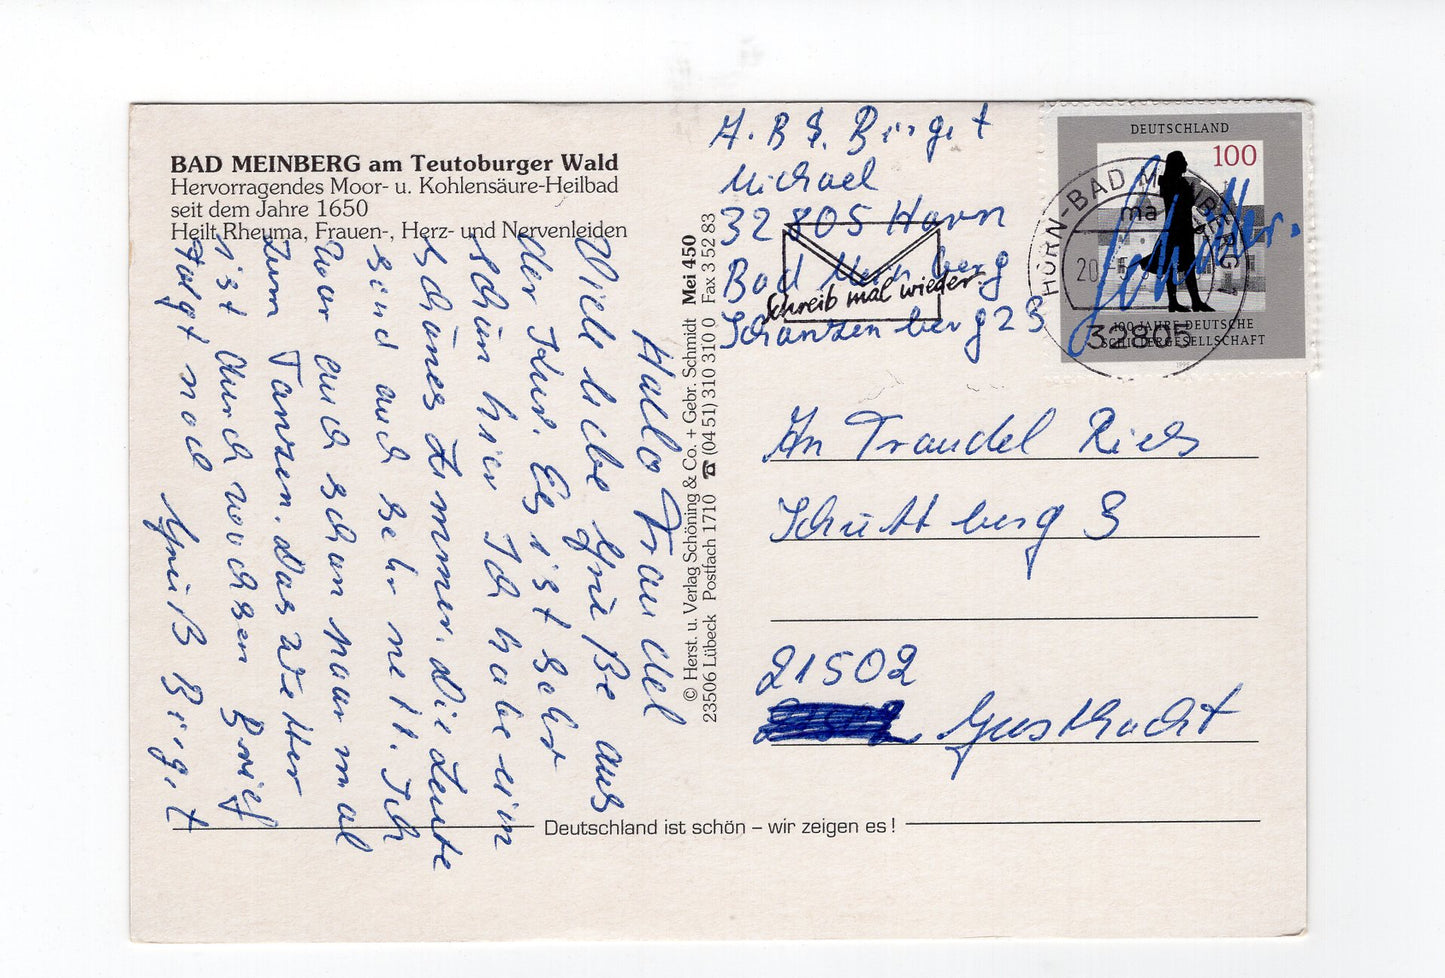 BAD MEINBERG am Teutoburger Wald
Hervorragendes Moor- u. Kohlensäure-Heilbad
seit dem Jahre 1650
Heilt Rheuma, Frauen-, Herz- und Nervenleiden
Hallo Traudel
Viele liebe Grüße aus
der Kur. Es ist sehr
schön hier Ich habe ein
schönes Zimmer. Die Leute
sind auch sehr nett. Ich
war auch schon paar mal
zum Tanzen. Das Wetter
ist durchwachsen Brief
Folgt noch
Gruß Birgit
© Herst. u. Verlag Schöning & Co. + Gebr. Schmidt Mei 450
23506 Lübeck Postfach 1710 ☎ (04 51) 310 310 0 Fax 3 52 83
A. B. S. Birgit
Michael
32805 Horn
Bad Meinberg
Schanzenberg 23
Schreib mal wieder.
DEUTSCHLAND
100
Schiller.
100 JAHRE DEUTSCHE
SCHILLERGESELLSCHAFT
1995
HORN-BAD MEINBERG
ma
20
32805
An Traudel Ries
Schüttberg 3
21502
Geesthacht
Deutschland ist schön – wir zeigen es!